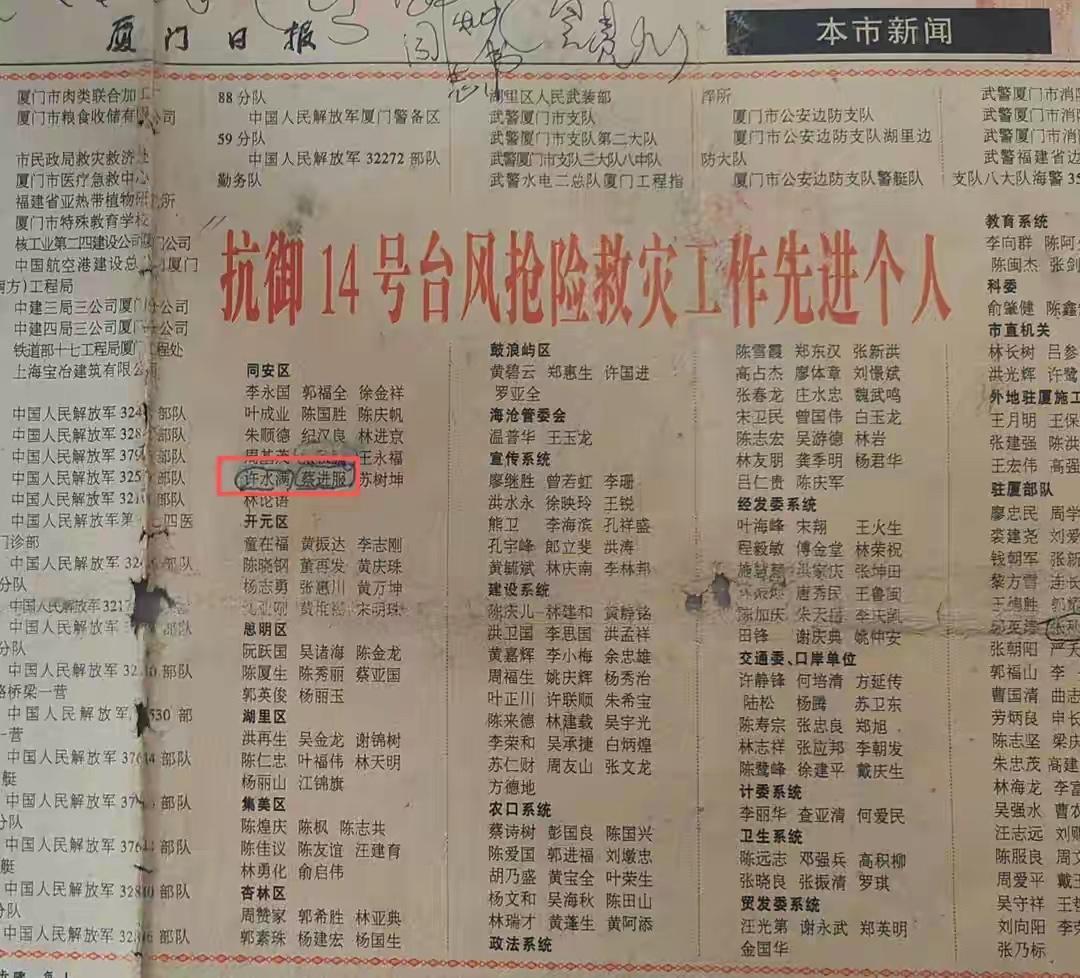 厦门日报
本市新闻
厦门市肉类联合加工
厦门市粮食收储有 公司
市民政局救灾救济
厦门市医疗急救中心
福建省亚热带植物研 所
厦门市特殊教育学校
核工业第二四建设公司厦门公司
中国航空港建设总 厦门
南方)工程局
中建三局三公司厦门分公司
中建四局三公司厦门 公司
铁道部十七工程局厦门工程处
上海宝冶建筑有限公
中国人民解放军 部队
中国人民解放军 部队
中国人民解放军 部队
中国人民解放军 部队
中国人民解放军 部队
中国人民解放军第 四医
门诊部
中国人民解放军 部队
分队
中国人民解放军 部队
中国人民解放军 部队
分队
中国人民解放军 部队
路桥梁一营
中国人民解放军 530 部
一营
中国人民解放军 部队
艇
中国人民解放军 部队
分队
中国人民解放军 部队
艇
中国人民解放军 部队
分队
中国人民解放军 部队
88 分队
中国人民解放军厦门警备区
59 分队
中国人民解放军 32272 部队
勤务队
湖里区人民武装部
武警厦门市支队
武警厦门市支队第二大队
武警厦门市支队三大队八中队
武警水电二总队厦门工程指
厦门市公安边防支队
厦门市公安边防支队湖里边
防大队
厦门市公安边防支队警艇队
武警厦门市消
武警厦门市消
武警厦门市消
武警福建省边
支队八大队海警 35
抗御14号台风抢险救灾工作先进个人
同安区
李永国 郭福全 徐金祥
叶成业 陈国胜 陈庆帆
朱顺德 纪汉良 林进京
周基茂 王永福
许水满 蔡进服 苏树坤
林论语
开元区
童在福 黄振达 李志刚
陈晓钢 董再发 黄庆珠
杨志勇 张惠川 黄万坤
宋明珠
思明区
阮跃国 吴诸海 陈金龙
陈厦生 陈秀丽 蔡亚国
郭英俊 杨丽玉
湖里区
洪再生 吴金龙 谢锦树
陈仁忠 叶福伟 林天明
杨丽山 江锦旗
集美区
陈煌庆 陈枫 陈志共
陈佳议 陈友谊 汪建育
林勇化 俞启伟
杏林区
周赞家 郭希胜 林亚典
郭素珠 杨建宏 杨国生
鼓浪屿区
黄碧云 郑惠生 许国进
罗亚全
海沧管委会
温普华 王玉龙
宣传系统
廖继胜 曾若虹 李珊
洪水永 徐映玲 王锐
熊卫 李海滨 孔祥盛
孔宇峰 郎立斐 洪涛
黄毓斌 林庆南 李林邦
建设系统
陈庆儿 林建和 黄静铭
洪卫国 李思国 洪孟祥
黄嘉辉 李小梅 余忠雄
周福生 姚庆辉 杨秀治
叶正川 许联顺 朱希宝
陈来德 林建载 吴宇光
李荣和 吴承捷 白炳煌
苏仁财 周友山 张文龙
方德地
农口系统
蔡诗树 彭国良 陈国兴
陈爱国 郭进福 刘墩忠
胡乃盛 黄宝全 叶荣生
杨文和 吴海秋 陈田山
林瑞才 黄蓬生 黄阿添
政法系统
陈雪霞 郑东汉 张新洪
高占杰 廖体章 刘憬斌
张春龙 庄水忠 魏武鸣
宋卫民 曾国伟 白玉龙
陈志宏 吴游德 林岩
林友朋 龚季明 杨君华
吕仁贵 陈庆军
经发委系统
叶海峰 宋翔 王火生
程毅敏 傅金堂 林荣祝
洪家庆 张坤田
唐秀民 王鲁闽
陈加庆 朱天 李庆凯
田锋 谢庆典 姚仲安
交通委、口岸单位
许静锋 何培清 方延传
陆松 杨腾 苏卫东
陈寿宗 张忠良 郑旭
林志祥 张应邦 李朝发
陈鹭峰 徐建平 戴庆生
计委系统
李丽华 查亚清 何爱民
卫生系统
陈远志 邓强兵 高积柳
张晓良 张振清 罗琪
贸发委系统
汪光第 谢永武 郑英明
金国华
教育系统
李向群 陈阿
陈闽杰 张剑
科委
俞肇健 陈鑫
市直机关
林长树 吕参
洪光辉 许鹭
外地驻厦施工
王月明 王保
张建强 陈洪
王宏伟 高强
驻厦部队
廖忠民 周学
裘建尧 刘爱
钱朝军 张新
黎方雪 连长
王德胜
张朝阳 严天
郭福山 李
曹国清 曲志
劳炳良 申长
陈志坚 梁庆
朱忠茂 高建
林海龙 李富
吴强水 曹农
汪志远 刘财
陈服良 周文
周爱平 戴王
吴守祥 王哲
刘向阳 李荣
张乃标